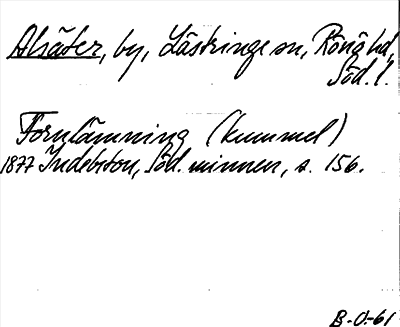 Alsäter, by, Lästringe sn, Rönö hd,
Söd. l.
Fornlämning (kummel)
1877 Indebetou, Söd. minnen, s. 156.
B-O-61